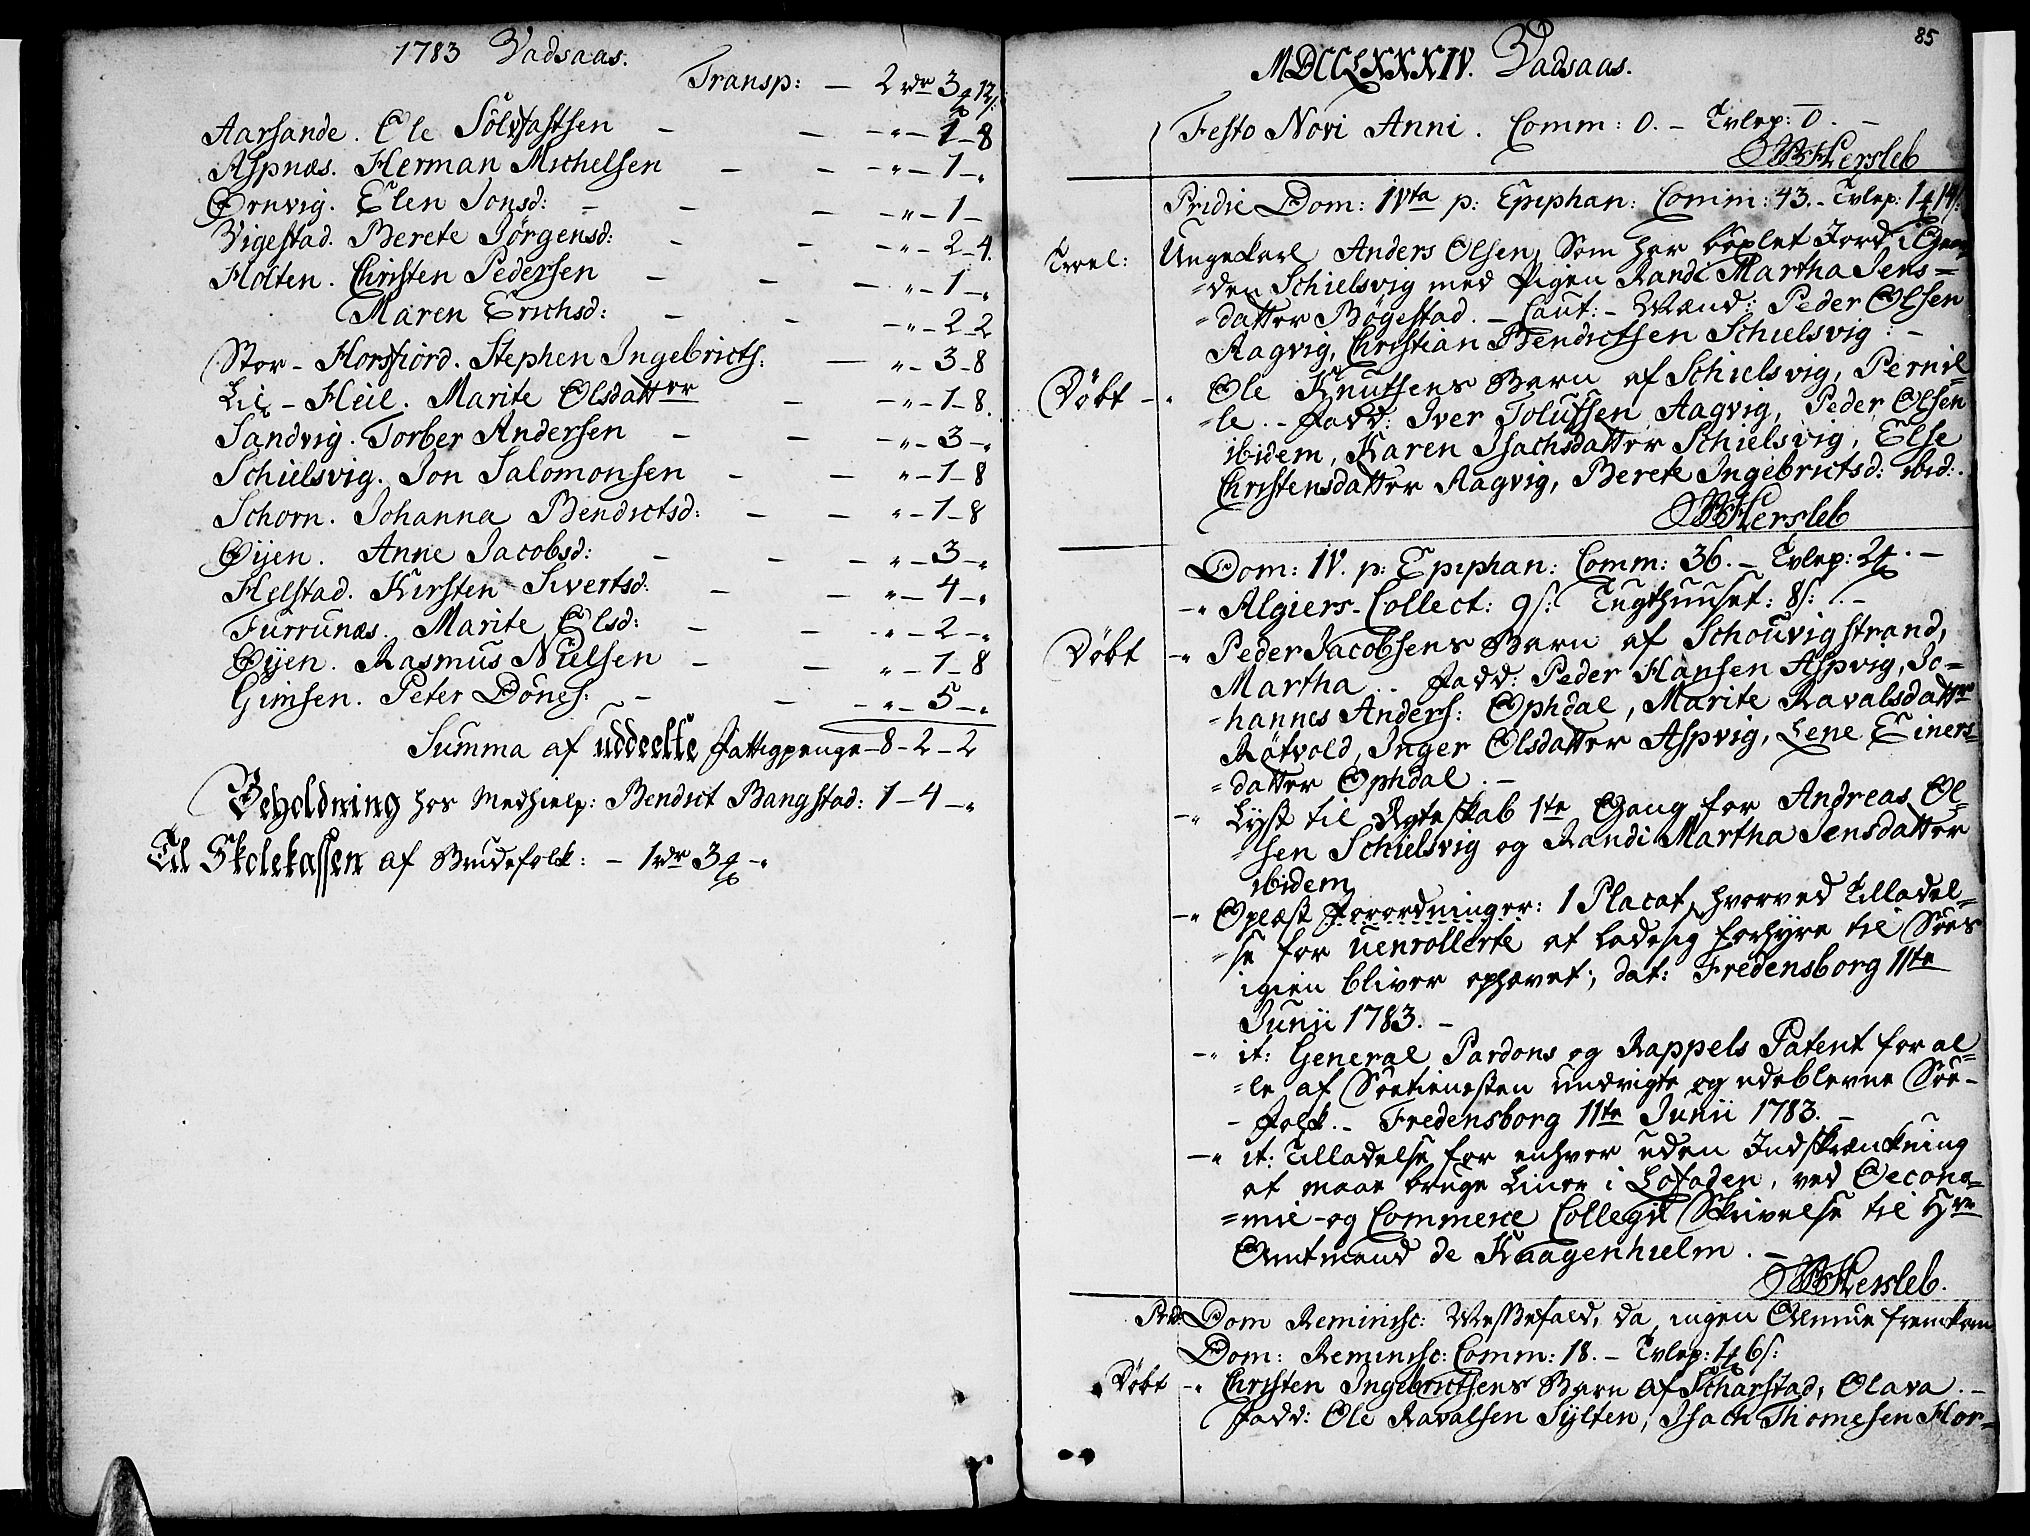 1783 Vadsaas.
Transp: — 2 rdr 3 ꝥ 12 s:
Aarsande. Ole Sölvfastsen — — -"- 1-8
Aspnæs. Herman Michelsen — — -"- 1-"
Ørnvig. Elen Jonsd: — — — -"- 1-
Vigestad. Berete Jörgensd: — — -"- 2-4.
Holten. Christen Pedersen — — — "-1-"
Maren Erichsd: — — -"-2-2
Stor-Horsfiord. Stephen Ingebricts: — "-3-8
Lil-Heil. Marite Olsdatter — -"-1-8.
Sandvig. Torber Andersen — — -"-3-"
Schielsvig. Jon Salomonsen — — "-1-8
Schorn. Johanna Bendictsd: — — "-1-8
Øÿen. Anne Jacobsd: — — — "-3-"
Helstad. Kirsten Sivertsd: — — "-4-"
Furrunæs. Marite Olsd: — — -"-2-"
Øÿen. Rasmus Nielsen — — "-1-8
Gimsen. Peter Dönes: — — -"-5-"
Summa af uddeelte Fattigpenge-8-2-2
Beholdning hos Medhielp: Bendict Bangstad: 1-4-"
Til Skolekassen af Brudefolk: - 1 rdr 3 ꝥ-"
85
MDCCLXXXIV. Vadsaas.
Festo Novi Anni. Comm: 0. — Tvlep: 0. —
Hersleb
Pridie Dom: IVta p: Epiphan: Comm: 43. - Tvlep: 1 ꝥ 14 s:
Trol: Ungekarl Anders Olsen, som har böxlet Jord i Gaar-
=den Schielsvig med Pigen Randi Martha Jens=
=datter Bögestad. - Caut:- Mænd: Peder Olsen
Aagvig, Christian Bendictsen Schielsvig: -
Döbt -" Ole Knutsens Barn af Schielsvig, Pernil=
=le. - Fadd: Iver Tolufsen Aagvig, Peder Olsen
ibidem, Karen Isachsdatter Schielsvig, Else
Christensdatter Aagvig, Berete Ingebrictsd: ibid:.
Hersleb
Dom: IV. p: Epiphan: Comm: 36. - Tvlep: 2 ꝥ. -
-" Algiers-Collect: 9 s: Tugthuuset: 8 s: . -
Döbt -" Peder Jacobsens Barn af Schouvigstrand,
Martha. . Fadd: Peder Hansen Aspvig, Jo=
=hannes Anders: Ophdal, Marite Ravalsdatter
Rötvold, Inger Olsdatter Aspvig, Lene Einers=
=datter Ophdal. -
-" Lyst til Ægteskab 1te Gang for Andreas Ol=
=sen Schielsvig og Randi Martha Jensdatter
ibidem
-" Oplæst Forordninger: 1 Placat, hvorved Tilladel=
=se for uenrollerte at lade sig forhyre til Söes
igien bliver ophævet; dat: Fredensborg 11te
Junii 1783. -
-" it: General Pardons og Rappels Patent for al=
=le af Söetienesten undvigte og udeblevne Söe-
-folk. - Fredensborg 11te Junii 1783. -
-" it: Tilladelse for enhver uden Indskrænckning
at maae bruge Liner i Lofoden, ved Oecono=
=mie-og Commerce Collegii Skrivelse til Hrr
Amtmand de Knagenhielm. -
Hersleb.
Prid: Dom Reminisc: Messefald, da ingen Almue fremkom
Dom: Reminisc: Comm: 18. - Tvlep: 1 ꝥ 6 s:
Döbt -" Christen Ingebrictsens Barn af Scharstad, Olava. -
Fadd: Ole Ravalsen Sÿlten, Isach Thomesen Hor=